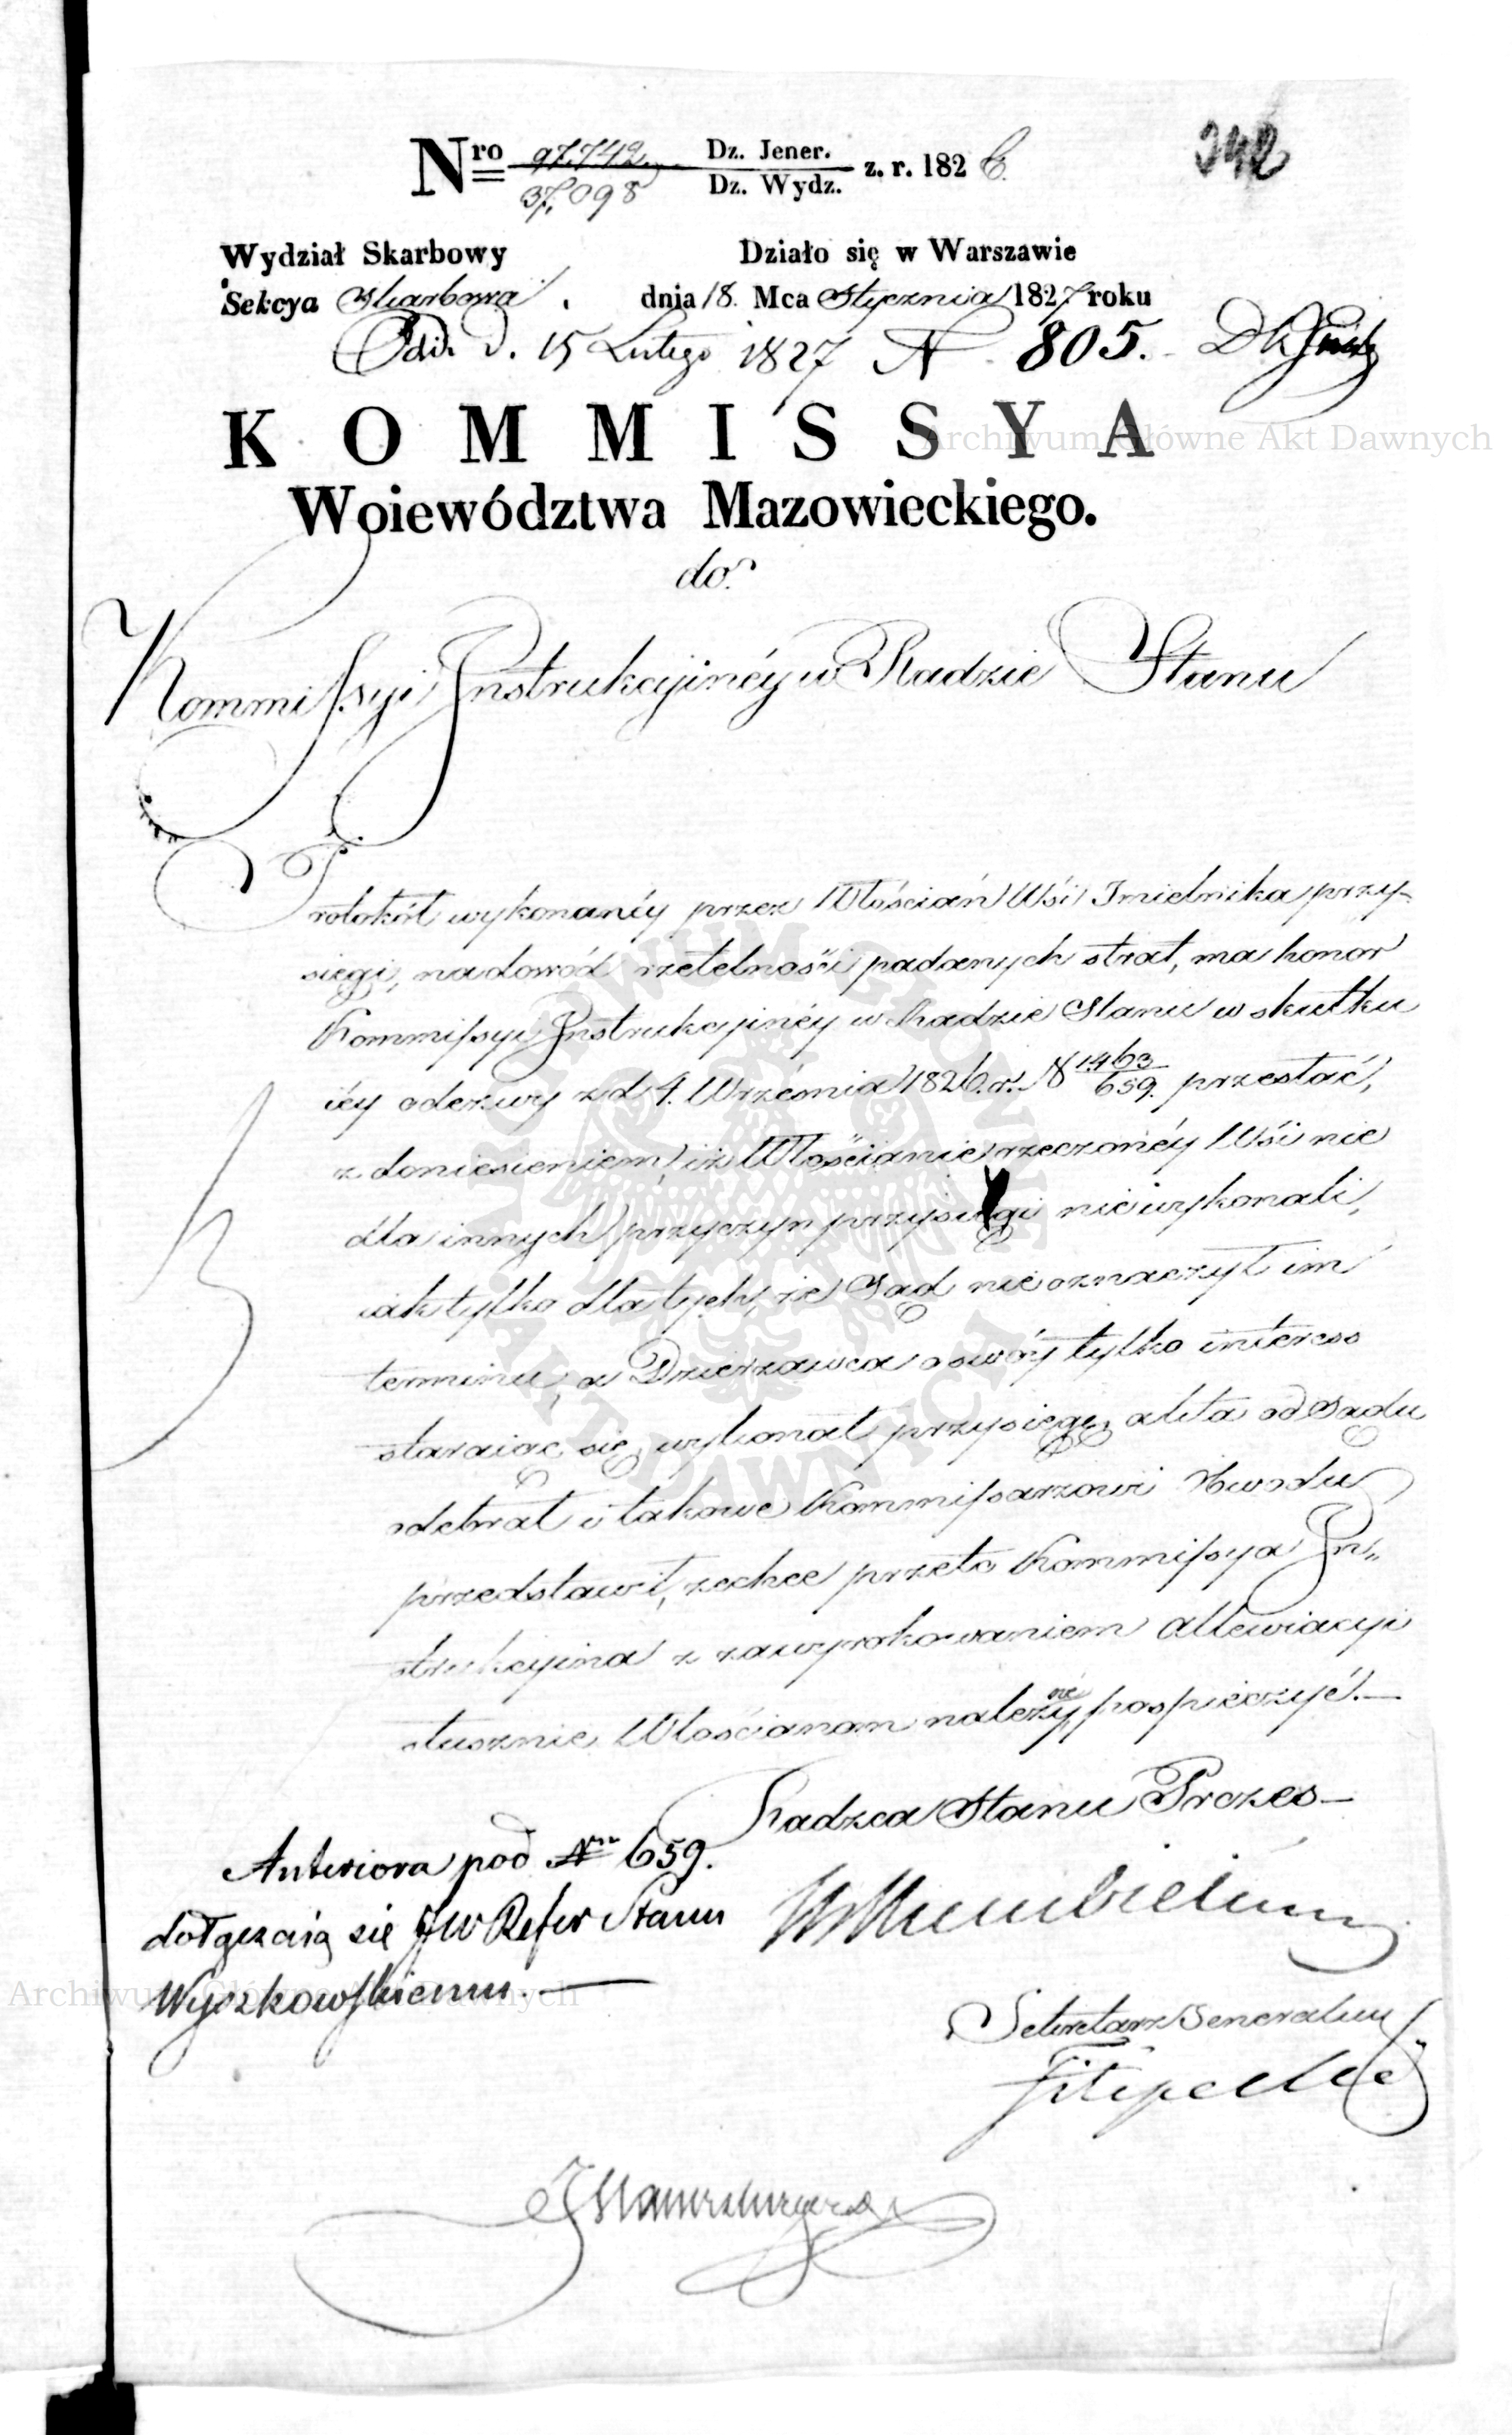 342
Nro 97.742 Dz. Jener. z. r. 1826.
37.098 Dz. Wydz.
Wydział Skarbowy Działo się w Warszawie
Sekcya Skarbowa. dnia 18. Mca Stycznia 1827 roku
Odd. d. 15 Lutego 1827 N 805.
KOMMISSYA
Woiewództwa Mazowieckiego.
do
Kommissyi Instrukcyjnéy w Radzie Stanu
Protokół wykonanéy przez Włościan Wsi Imielnika przy-
sięgi, na dowód rzetelności podanych strat, ma honor
Kommissyi Instrukcyjnéy w Radzie Stanu w skutku
iéy odezwy z d 4. Września 1826. r. N 1463/659. przesłać,
z doniesieniem, iż Włościanie rzeczonéy Wsi nie
dla innych przyczyn przysięgi nie wykonali,
iak tylko dla tych, że Sąd nie oznaczył im
terminu, a Dzierzawca o swóy tylko interess
staraiąc się, wykonał przysięgę, akta od Sądu
odebrał i takowe Kommissarzowi Obwodu
przedstawił, zechce przeto Kommissya In„
strukcyina z zawyrokowaniem allewiacyi
słusznie Włościanom należnéy pospieszyć.—
Radzca Stanu Prezes—
Anteriora pod Nro 659.
dołączaią się JW Refer Stanu
Wyszkowskiemu.—
Sekretarz Generalny
Filipecki
Archiwum Główne Akt Dawnych
Archiwum Główne Akt Dawnych
ARCHIWUM GŁÓWNE AKT DAWNYCH